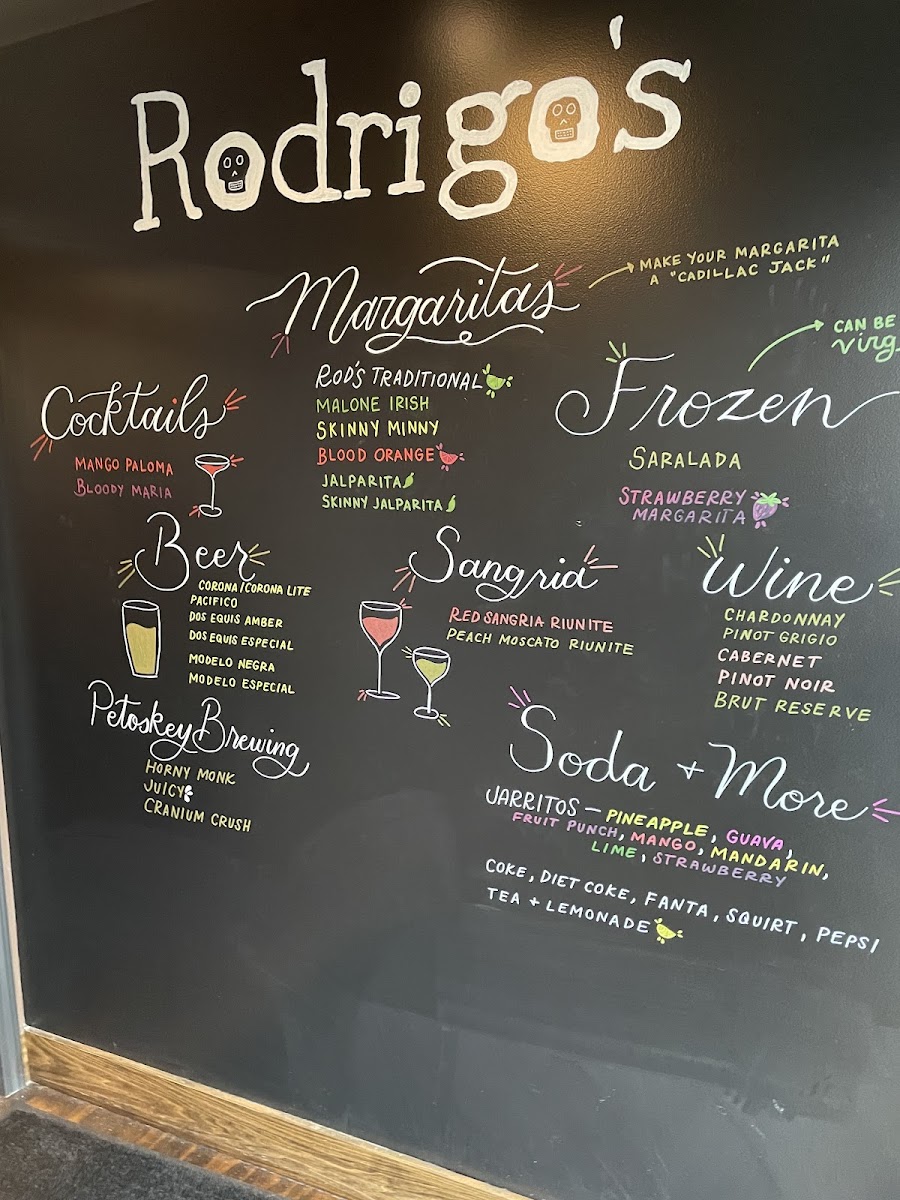 Rodrigo's
Margaritas
MAKE YOUR MARGARITA
A "CADILLAC JACK"
ROD'S TRADITIONAL
MALONE IRISH
SKINNY MINNY
BLOOD ORANGE
JALPARITA
SKINNY JALPARITA
CAN BE
Frozen
SARALADA
STRAWBERRY
MARGARITA
Cocktails
MANGO PALOMA
BLOODY MARIA
Beer
CORONA/CORONA LITE
PACIFICO
DOS EQUIS AMBER
DOS EQUIS ESPECIAL
MODELO NEGRA
MODELO ESPECIAL
Sangria
RED SANGRIA RIUNITE
PEACH MOSCATO RIUNITE
Wine
CHARDONNAY
PINOT GRIGIO
CABERNET
PINOT NOIR
BRUT RESERVE
Petoskey Brewing
HORNY MONK
JUICY
CRANIUM CRUSH
Soda + More
JARRITOS — PINEAPPLE, GUAVA,
FRUIT PUNCH, MANGO, MANDARIN,
LIME, STRAWBERRY
COKE, DIET COKE, FANTA, SQUIRT, PEPSI
TEA + LEMONADE